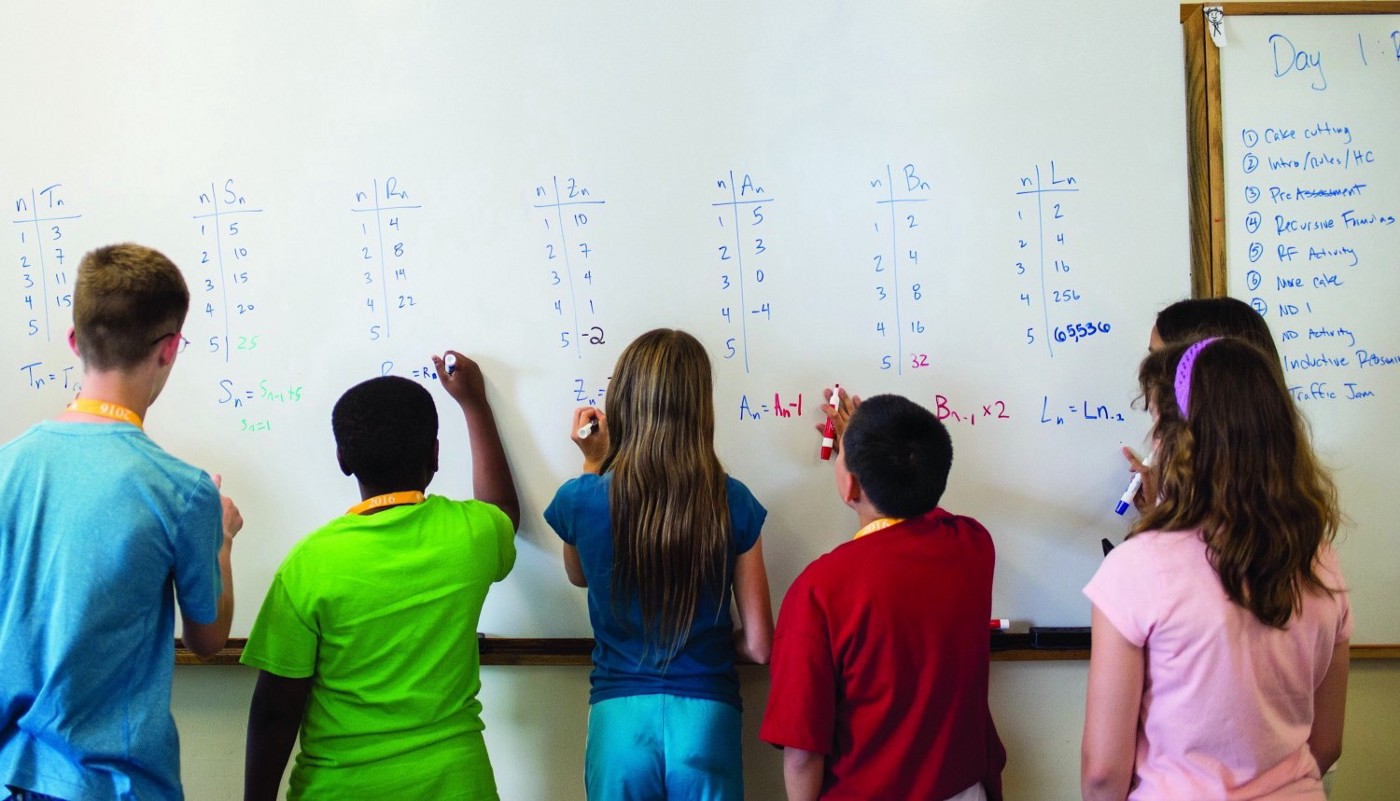 n Tn
1 3
2 7
3 11
4 15
5
Tn =
n Sn
1 5
2 10
3 15
4 20
5 25
Sn = Sn-1+5
Sn=1
n Rn
1 4
2 8
3 14
4 22
5
= Rn
n Zn
1 10
2 7
3 4
4 1
5 -2
Zn =
n An
1 5
2 3
3 0
4 -4
5
An = An-1
n Bn
1 2
2 4
3 8
4 16
5 32
Bn-1 × 2
n Ln
1 2
2 4
3 16
4 256
5 65,536
Ln = Ln-1
Day 1:
① Cake cutting
② Intro/Rules/HC
③ Pre Assessment
④ Recursive Formulas
⑤ RF Activity
⑥ More cake
⑦ ND 1
ND Activity
Inductive
Traffic Jam
2016
2016